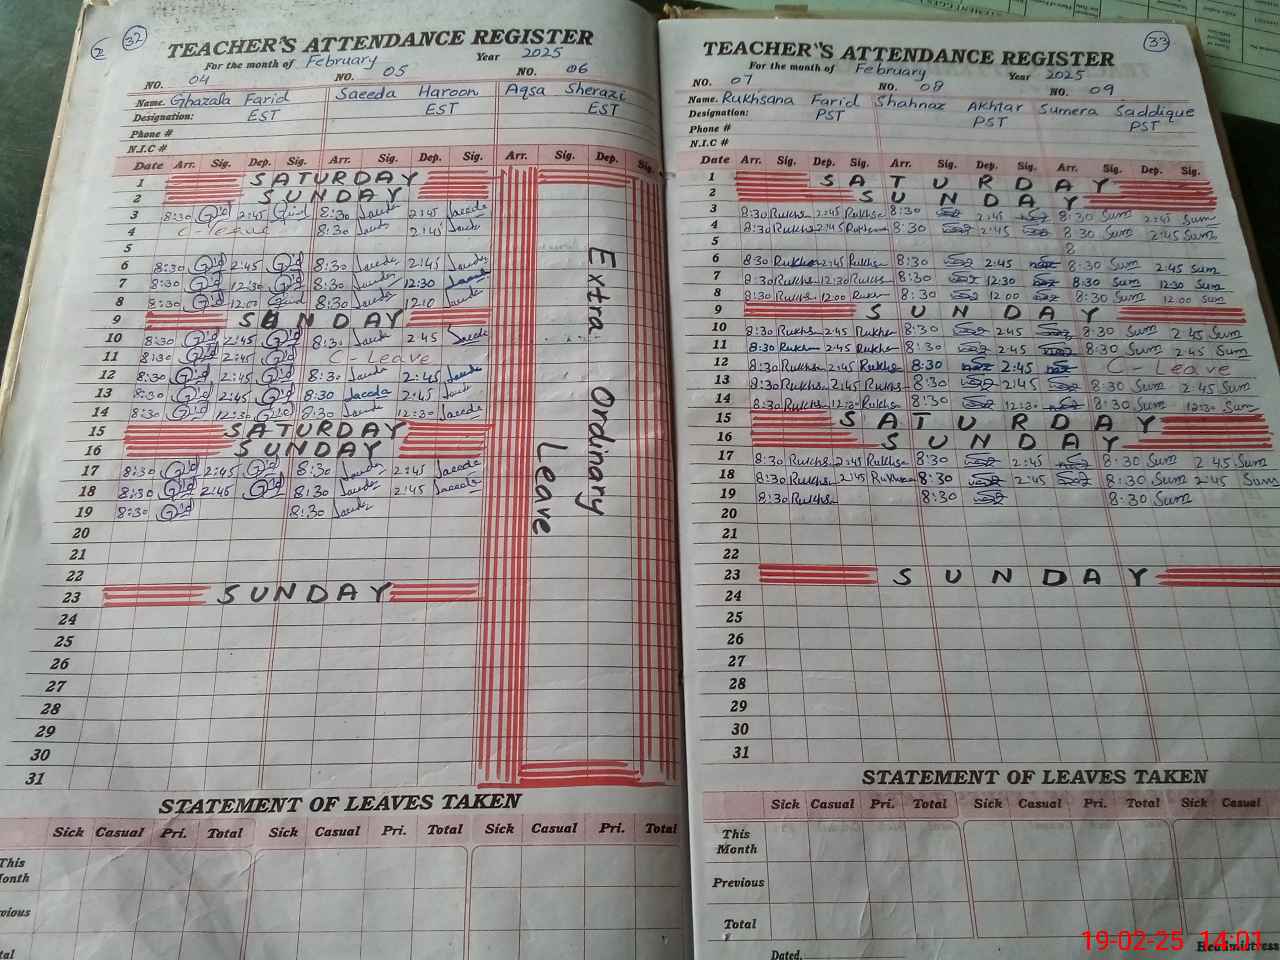 2 32
TEACHER'S ATTENDANCE REGISTER
For the month of February Year 2025
NO. 04 NO. 05 NO. 06
Name. Ghazala Farid Saeeda Haroon Aqsa Sherazi
Designation: EST EST EST
Phone #
N.I.C #
Date Arr. Sig. Dep. Sig. Arr. Sig. Dep. Sig. Arr. Sig. Dep. Sig.
1 SATURDAY
2 SUNDAY
3 8:30 2:45 8:30 Saeeda 2:45 Saeeda
4 C-leave 8:30 Saeeda 2:45 Saeeda
5
6 8:30 2:45 8:30 Saeeda 2:45 Saeeda
7 8:30 12:30 8:30 Saeeda 12:30 Saeeda
8 8:30 12:00 8:30 Saeeda 12:10 Saeeda
9 SUNDAY
10 8:30 2:45 8:30 Saeeda 2:45 Saeeda
11 8:30 2:45 C-Leave
12 8:30 2:45 8:30 Saeeda 2:45 Saeeda
13 8:30 2:45 8:30 Saeeda 2:45 Saeeda
14 8:30 12:30 8:30 Saeeda 12:30 Saeeda
15 SATURDAY
16 SUNDAY
17 8:30 2:45 8:30 Saeeda 2:45 Saeeda
18 8:30 2:45 8:30 Saeeda 2:45 Saeeda
19 8:30 8:30 Saeeda
20
21
22
23 SUNDAY
24
25
26
27
28
29
30
31
Extra Ordinary
Leave
STATEMENT OF LEAVES TAKEN
Sick Casual Pri. Total Sick Casual Pri. Total Sick Casual Pri. Total
This
onth
vious
tal
33
TEACHER'S ATTENDANCE REGISTER
For the month of February Year 2025
NO. 07 NO. 08 NO. 09
Name. Rukhsana Farid Shahnaz Akhtar Sumera Saddique
Designation: PST PST PST
Phone #
N.I.C #
Date Arr. Sig. Dep. Sig. Arr. Sig. Dep. Sig. Arr. Sig. Dep. Sig.
1 SATURDAY
2 SUNDAY
3 8:30 Rukhs 2:45 Rukhsa 8:30 2:45 8:30 Sum 2:45 Sum
4 8:30 Rukhs 2:45 Rukhsa 8:30 2:45 8:30 Sum 2:45 Sum
5 8
6 8:30 Rukhsa 2:45 Rukhsa 8:30 2:45 8:30 Sum 2:45 Sum
7 8:30 Rukhsa 12:30 Rukhs 8:30 12:30 8:30 Sum 12:30 Sum
8 8:30 Rukhs 12:00 Rukhs 8:30 12:00 8:30 Sum 12:00 Sum
9 SUNDAY
10 8:30 Rukhs 2:45 Rukhsa 8:30 2:45 8:30 Sum 2:45 Sum
11 8:30 Rukhsa 2:45 Rukhsa 8:30 2:45 8:30 Sum 2:45 Sum
12 8:30 Rukhsa 2:45 Rukhsa 8:30 2:45 C-Leave
13 8:30 Rukhsa 2:45 Rukhsa 8:30 2:45 8:30 Sum 2:45 Sum
14 8:30 Rukhsa 12:30 Rukhsa 8:30 12:30 8:30 Sum 12:30 Sum
15 SATURDAY
16 SUNDAY
17 8:30 Rukhs 2:45 Rukhsa 8:30 2:45 8:30 Sum 2:45 Sum
18 8:30 Rukhsa 2:45 Rukhsa 8:30 2:45 8:30 Sum 2:45 Sum
19 8:30 Rukhs 8:30 8:30 Sum
20
21
22
23 SUNDAY
24
25
26
27
28
29
30
31
STATEMENT OF LEAVES TAKEN
Sick Casual Pri. Total Sick Casual Pri. Total Sick Casual
This
Month
Previous
Total
Dated. Headmistress
19-02-25 14:01